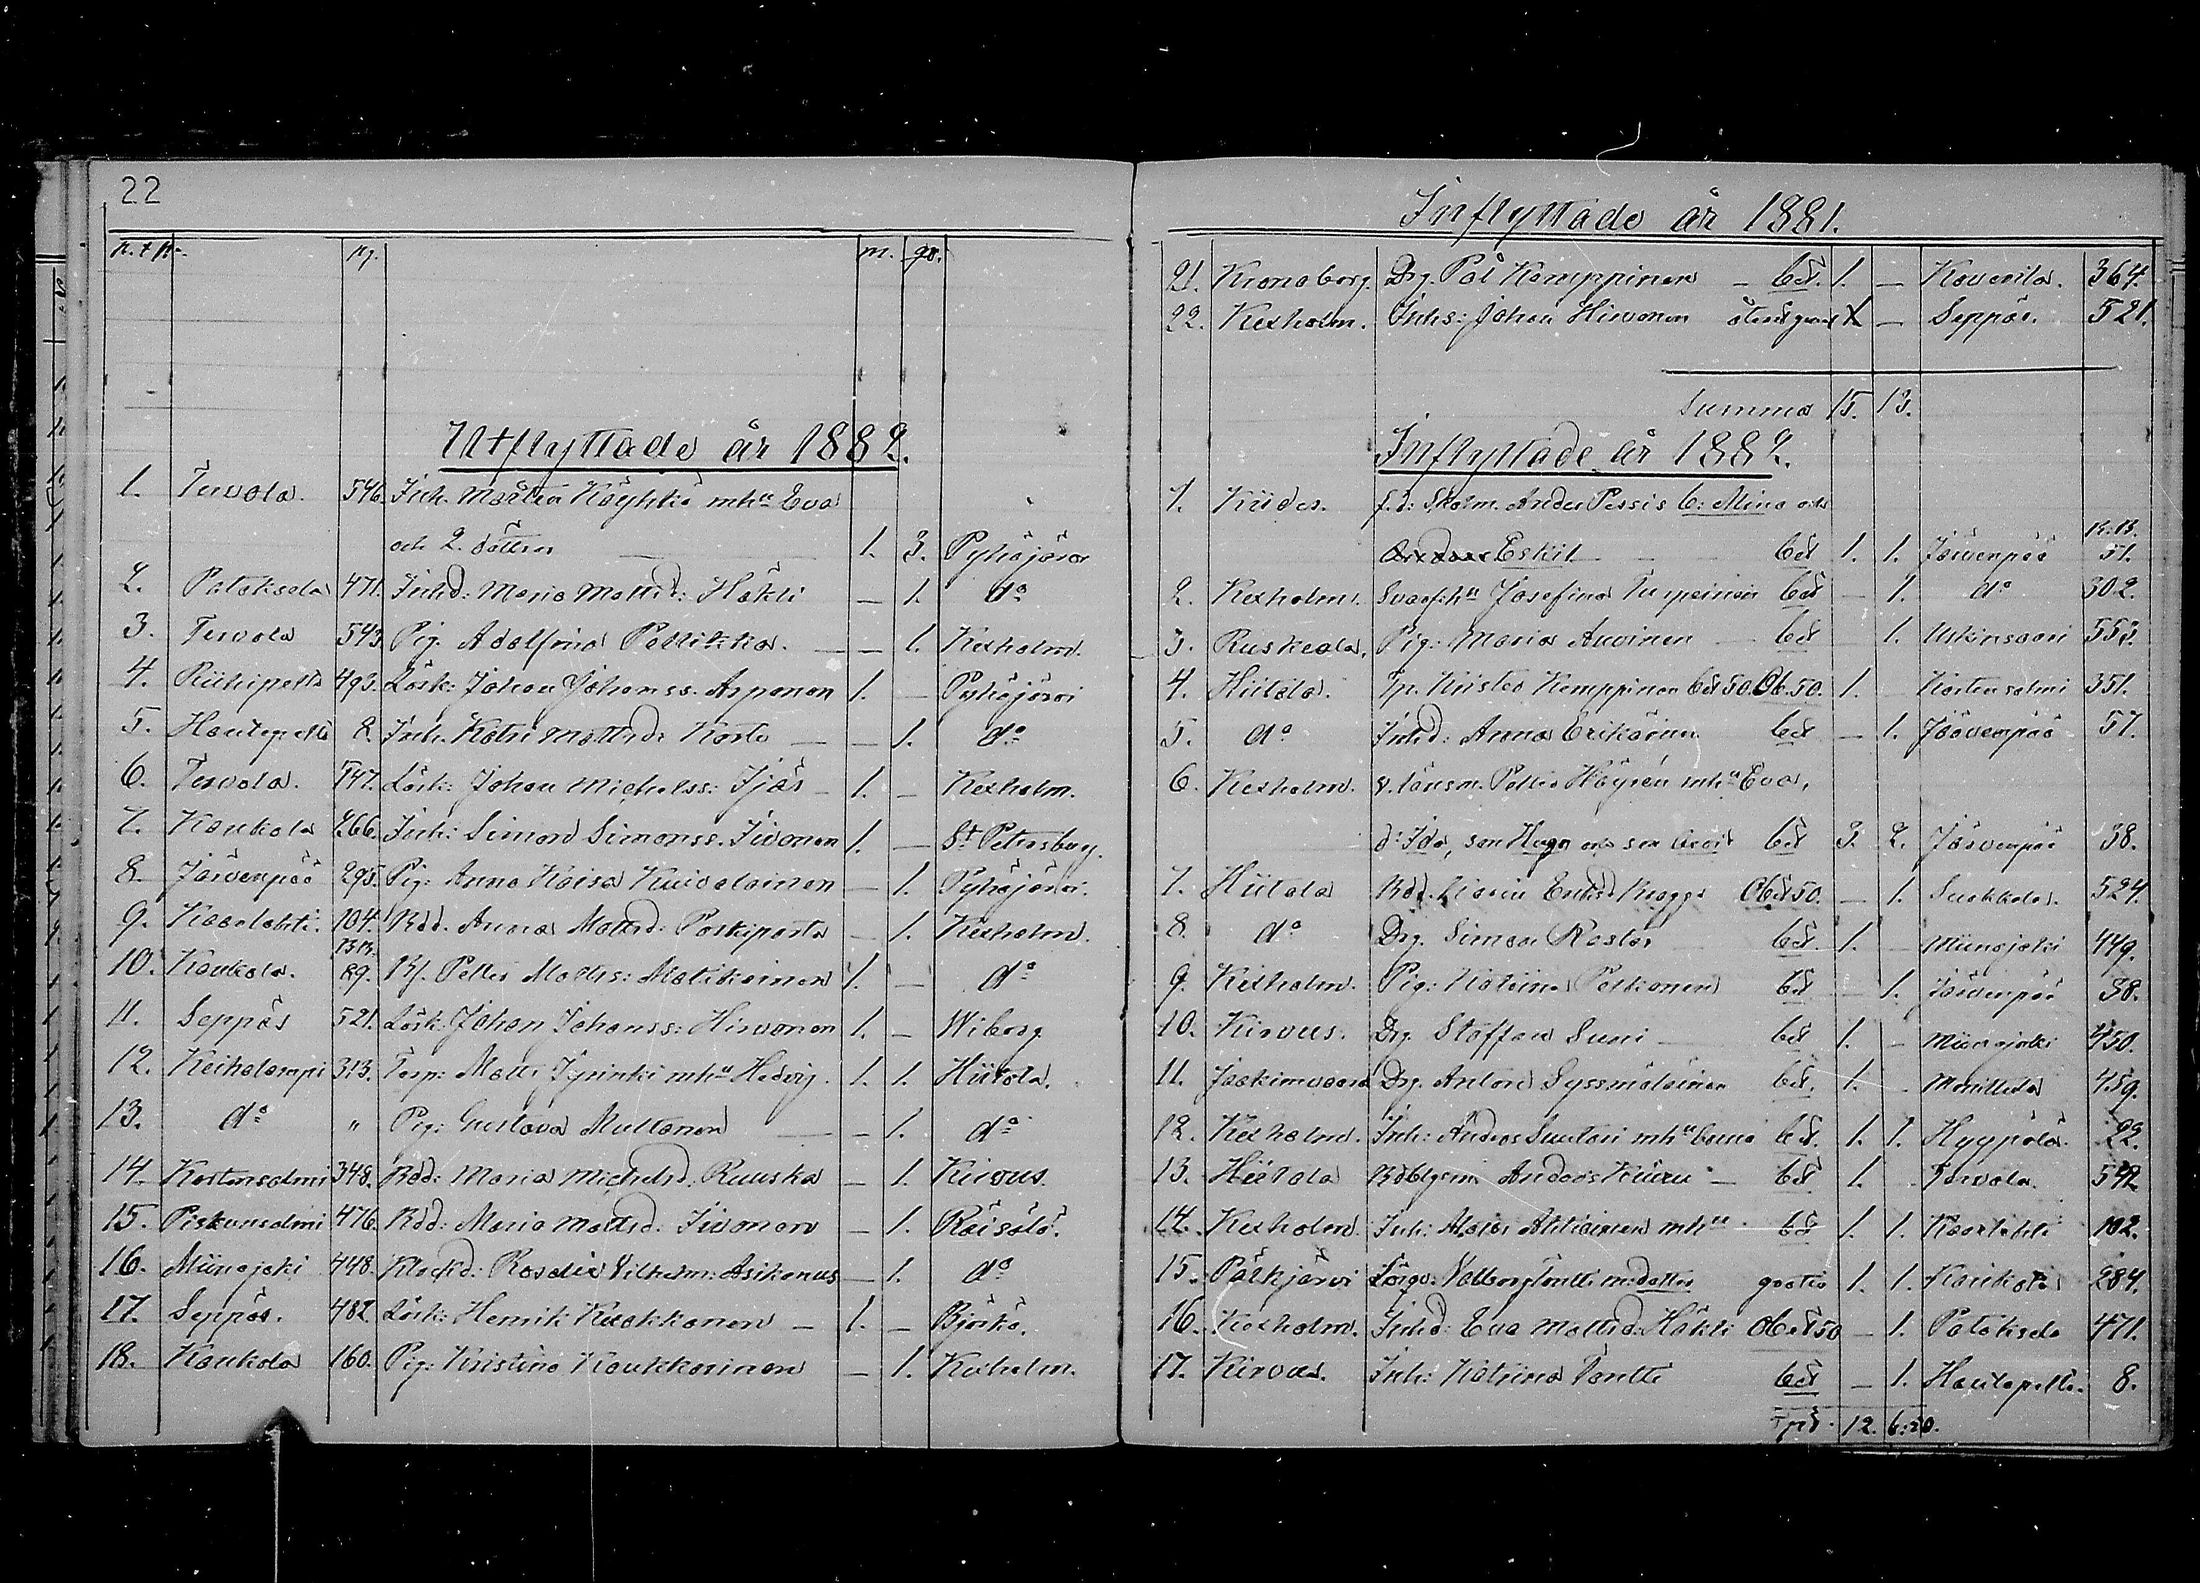 22
pag.
m. qv.
Utflyttade år 1882.
1. Tervola. 546. Inh. Mårten Käyhkö mhu Eva
och 2. döttrar 1. 3. Pyhäjärvi
2. Patoksela 471. Inhd: Maria Mattsd: Häkli — 1. do
3. Tervola 543. Pig. Adolfina — 1. Kexholm.
4. Riihipelto 493. Lösk: Johan Johanss. Asponen 1. — Pyhäjärvi
5. Hautapelto 8. Inh. Katri Mattsd: Kosto — 1. do
6. Tervola. 547. Lösk: Johan Michelss: Ijäs 1. — Kexholm.
7. Kaukola 266. Inh: Simon Simonss. Iivonen 1. — St Petersburg.
8. Järvenpää 295. Pig: Anna Kaisa Kuivalainen — 1. Pyhäjärvi.
9. Kaarlahti. 104. Bdd. Anna Mattsd: Paskiparta — 1. Kexholm.
10. Kaukola. 89. Petter Matts: Matikainen 1. — do
11. Seppäs 521. Lösk: Johan Johanss: Hirvonen 1. — Wiborg
12. Keiholampi 313. Torp: Matti Jyrinki mhu Hedvig. 1. 1. Hiitola.
13. do " Pig: Gustava Multanen — 1. do
14. Kortensalmi 348. Bdd: Maria Michelsd. Ruuska — 1. Kirvus.
15. Piskunsalmi 476. Bdd: Maria Mattsd: Iivonen — 1. Räisälä.
16. Miinajoki 448. Klockd: Rosalie Vilhelm: Asikanus — 1. do
17. Seppäs. 482 Lösk: Henrik Kuokkanen 1. — Björkö.
18. Kaukola 160. Pig: Kristina Kaukkarinen — 1. Kexholm.
Inflyttade år 1881.
21. Kronoborg. Drg. Pål Kemppinen — bet. 1. — Koverila. 364.
22. Kexholm. Inhs: Johan Hirvonen — Seppäs. 521.
Summa 15. 13.
Inflyttade år 1882.
1. Kides. f.d: Skolm. Anders Pessis b: Mina och
Eskil bet 1. 1. Järvenpää 51.
2. Kexholm. Josefina bet — 1. do 302.
3. Ruskeala, Pig: Maria Auvinen bet 1. Uskinsaari 553.
4. Hiitola. Kristo Kemppinen bet 50. Obt. 50. 1. Kortensalmi 351.
5. do Inhd: Anna Erikäinen bet — 1. Järvenpää 57.
6. Kexholm. v. länsm. Petter Häyrén mhu Eva,
d: Ida, son Hugo och son Arvit bet 3. 2. Järvenpää 38.
7. Hiitola Bdd. Maria Eriksd Obet 50. — 1. Suokkola. 524.
8. do Drg. Simon Rastas bet 1. Miinajoki 449.
9. Kexholm. Pig: Katrina Pekonen bet — 1. Järvenpää 38.
10. Kirvus. Drg. Staffan Suni bet 1. — Miinajoki 450.
11. Joakimvaara Drg. Anton Syssmäläinen bet. 1. Monttila 459.
12. Kexholm. Inh: Anders Suutari mhu bet. 1. 1. Hyypölä. 22.
13. Hiitola Anders Kiuru — bet 1. Tervola. 542
14. Kexholm. Inh: Ahtiainen mhu bet 1. 1. Kaarlahti. 102.
15. Pälkjärvi gratis 1. 1. Kaukola 284.
16. Kexholm. Inhd: Eva Mattsd: Häkli Obet 50 — 1. Pataksela 471.
17. Kirvus. Inh: Katrina Tontti bet — 1. Hautapelto. 8.
12. 6:50.